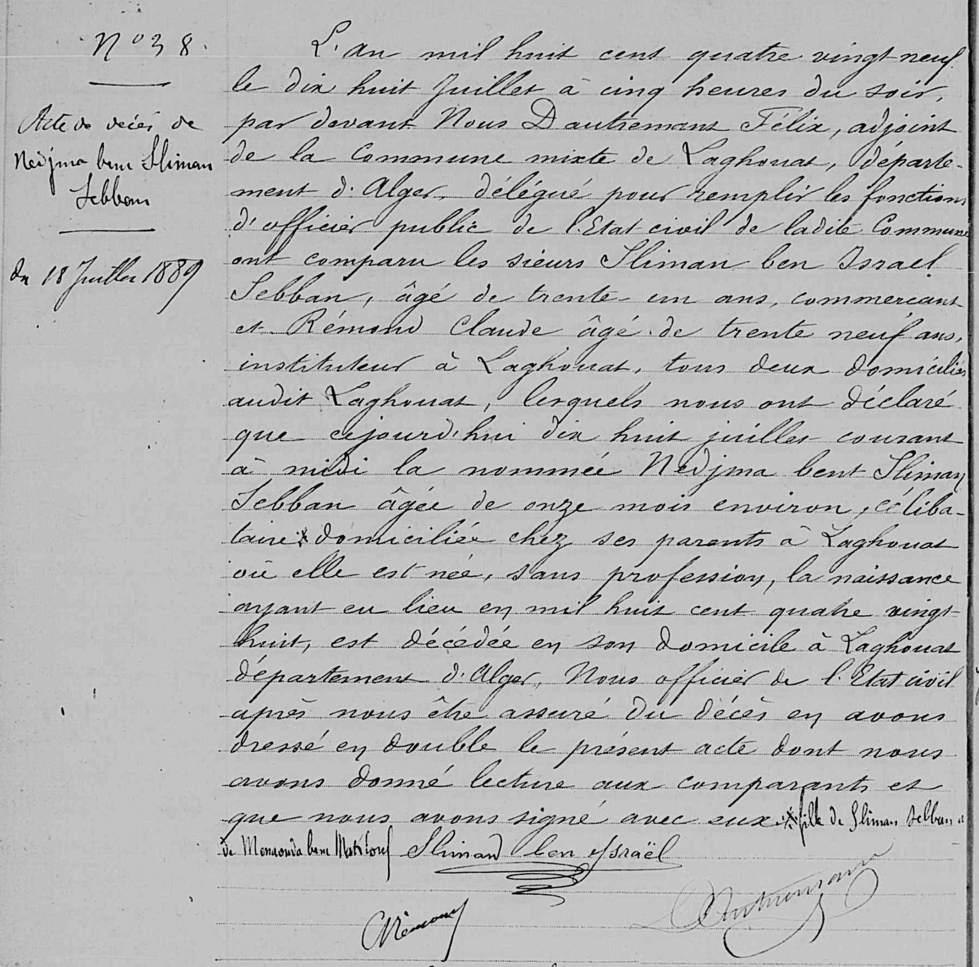 N° 38.
Acte de décès de
Nedjma bent Sliman
Sebban
du 18 Juillet 1889
L'an mil huit cent quatre vingt neuf
le dix huit Juillet à cinq heures du soir,
par devant Nous Dautremant Félix, adjoint
de la Commune mixte de Laghouat, départe-
ment d'Alger, délégué pour remplir les fonctions
d'officier public de l'Etat civil de ladite Commune
ont comparu les sieurs Sliman ben Israel
Sebban, âgé de trente-un ans, commerçant
et Rémond Claude âgé de trente neuf ans,
instituteur à Laghouat, tous deux domiciliés
audit Laghouat, lesquels nous ont déclaré
que cejourd'hui dix huit juillet courant
à midi la nommée Nedjma bent Sliman
Sebban âgée de onze mois environ, céliba-
taire * domiciliée chez ses parents à Laghouat
où elle est née, sans profession, la naissance
ayant eu lieu en mil huit cent quatre vingt
huit, est décédée en son domicile à Laghouat
département d'Alger, Nous officier de l'Etat civil
après nous être assuré du décès en avons
dressé en double le présent acte dont nous
avons donné lecture aux comparants et
que nous avons signé avec eux. * fille de Sliman Sebban et
de Messaouda bent Makhlouf Sliman ben Ysraël
CRémond Dautremant